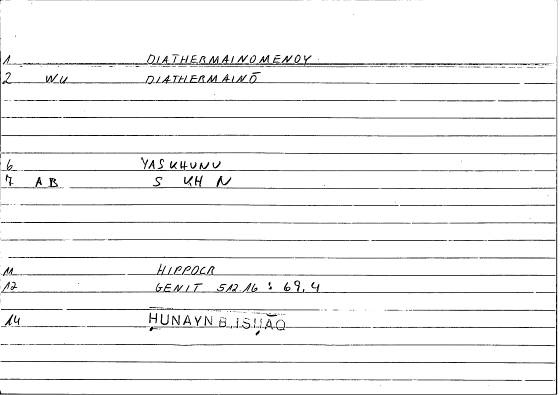 1 DIATHERMAINOMENOY
2 WU DIATHERMAINŌ
6 YASKHUNU
7 AB S KH N
11 HIPPOCR
12 GENIT 512.16 : 69,4
14 ḤUNAYN B. ISḤĀQ